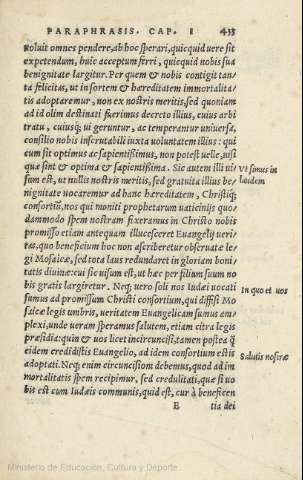 PARAPHRASIS. CAP. I 435
uoluit omnes pendere, ab hoc sperari, quicquid uere sit
expetendum, huic acceptum ferri, quicquid nobis sua
benignitate largitur. Per quem & nobis contigit tan-
ta felicitas, ut in sortem & hæreditatem immortalita-
tis adoptaremur, non ex nostris meritis, sed quoniam
ad id olim destinati fuerimus decreto illius, cuius arbi
tratu, cuiusq; ui geruntur, ac temperantur uniuersa,
consilio nobis inscrutabili iuxta uoluntatem illius: qui
cum sit optimus ac sapientissimus, non potest uelle, nisi
quæ sint & optima & sapientissima. Sic autem illi ui-
sum est, ut nullis nostris meritis, sed gratuita illius be-
nignitate uocaremur ad hanc hæreditatem, Christiq;
consortiū, nos qui moniti prophetarum uaticinijs quo-
dammodo spem nostram fixeramus in Christo nobis
promisso etiam antequam illucesceret Euangelij ueri-
tas, quo beneficium hoc non ascriberetur obseruatæ le-
gi Mosaicæ, sed tota laus redundaret in gloriam boni-
tatis diuinæ: cui sic uisum est, ut hæc per filium suum no
bis gratis largiretur. Neq; uero soli nos Iudæi uocati
sumus ad promissum Christi consortium, qui diffisi Mo
saicæ legis umbris, ueritatem Euangelicam sumus am-
plexi, unde ueram speramus salutem, etiam citra legis
præsidia: quin & uos licet incircuncisi, tamen postea q̃
eidem credidistis Euangelio, ad idem consortium estis
adoptati. Neq; enim circuncisioni debemus, quod ad im
mortalitatis spem recipimur, sed credulitati, quæ si uo
bis est cum Iudæis communis, quid est, cur à beneficen
E tia dei
Vt simus in
laudem
In quo et uos
Salutis nostræ
Ministerio de Educación, Cultura y Deporte